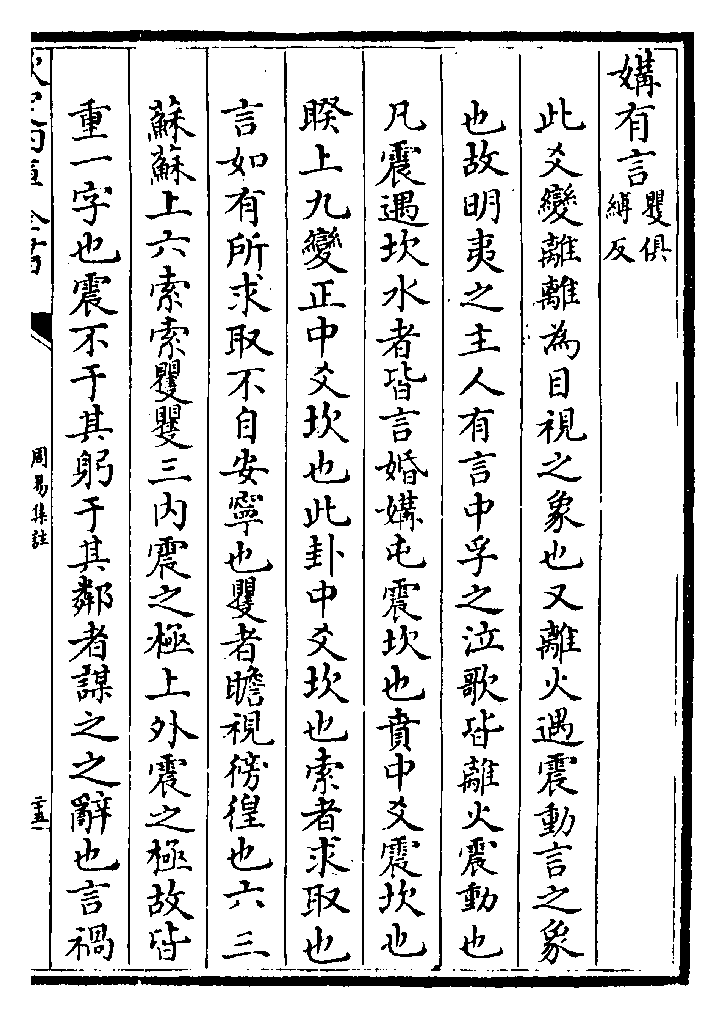 媾有言瞿俱縛反
此爻變離離為目視之象也又離火遇震動言之象
也故明夷之主人有言中孚之泣歌皆離火震動也
凡震遇坎水者皆言婚媾屯震坎也賁中爻震坎也
睽上九變正中爻坎也此卦中爻坎也索者求取也
言如有所求取不自安寧也矍者瞻視徬徨也六三
蘇蘇上六索索矍矍三内震之極上外震之極故皆
重一字也震不于其躬于其鄰者謀之之辭也言禍
周易集註